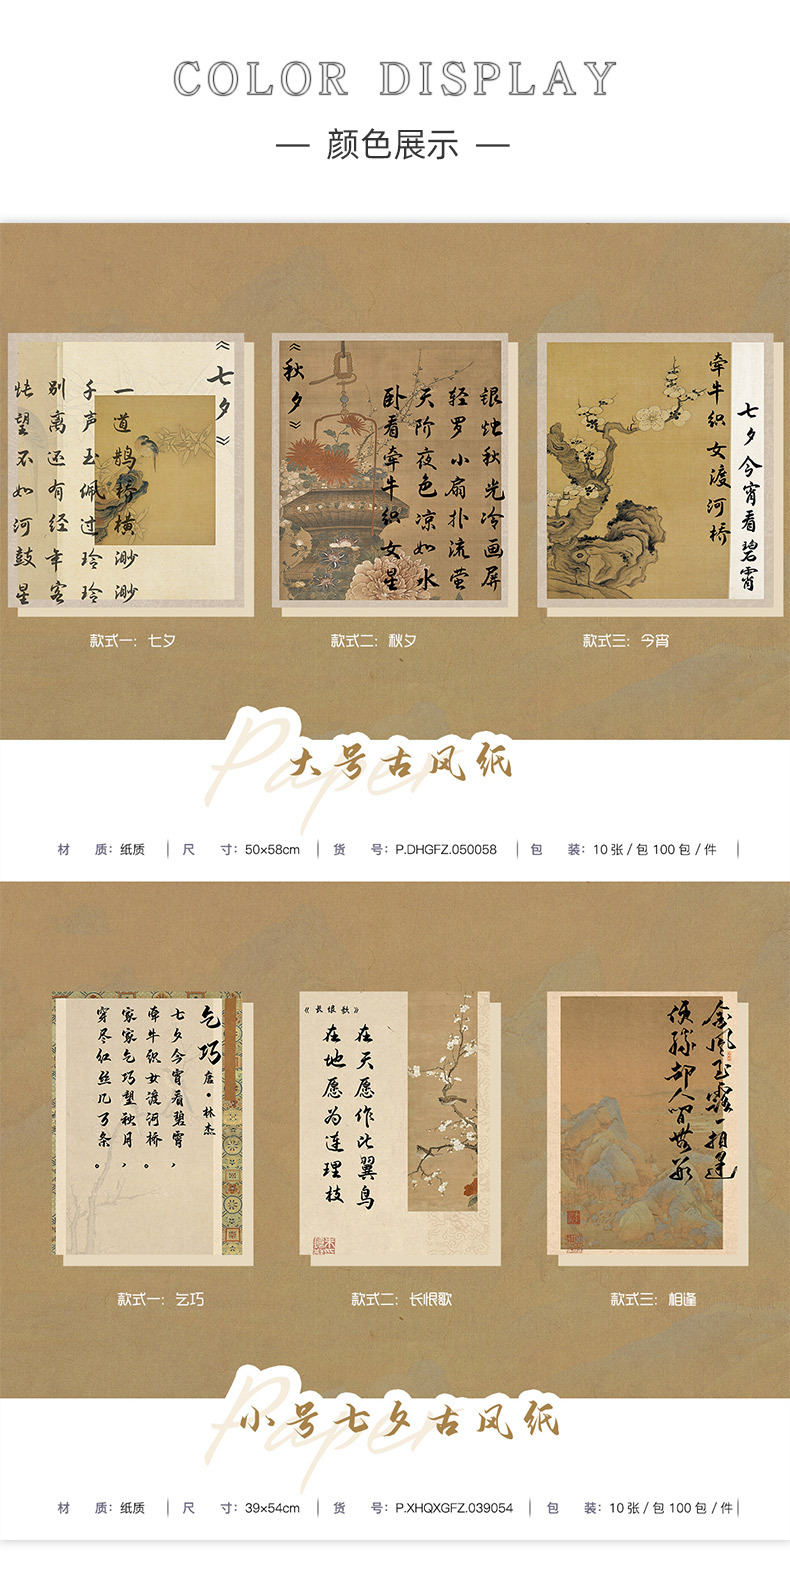 COLOR DISPLAY
— 颜色展示 —
《七夕》
一道鹊桥横渺渺
千声玉佩过玲玲
别离还有经年客
怅望不如河鼓星
款式一：七夕
《秋夕》
银烛秋光冷画屏
轻罗小扇扑流萤
天阶夜色凉如水
卧看牵牛织女星
款式二：秋夕
七夕今宵看碧霄
牵牛织女渡河桥
款式三：今宵
Paper
大号古风纸
材 质：纸质 | 尺 寸：50×58cm | 货 号：P.DHGFZ.050058 | 包 装：10张/包100包/件 |
乞巧
唐·林杰
七夕今宵看碧霄，
牵牛织女渡河桥。
家家乞巧望秋月，
穿尽红丝几万条。
款式一：乞巧
《长恨歌》
在天愿作比翼鸟
在地愿为连理枝
款式二：长恨歌
金风玉露一相逢
便胜却人间无数
款式三：相逢
Paper
小号七夕古风纸
材 质：纸质 | 尺 寸：39×54cm | 货 号：P.XHQXGFZ.039054 | 包 装：10张/包100包/件|